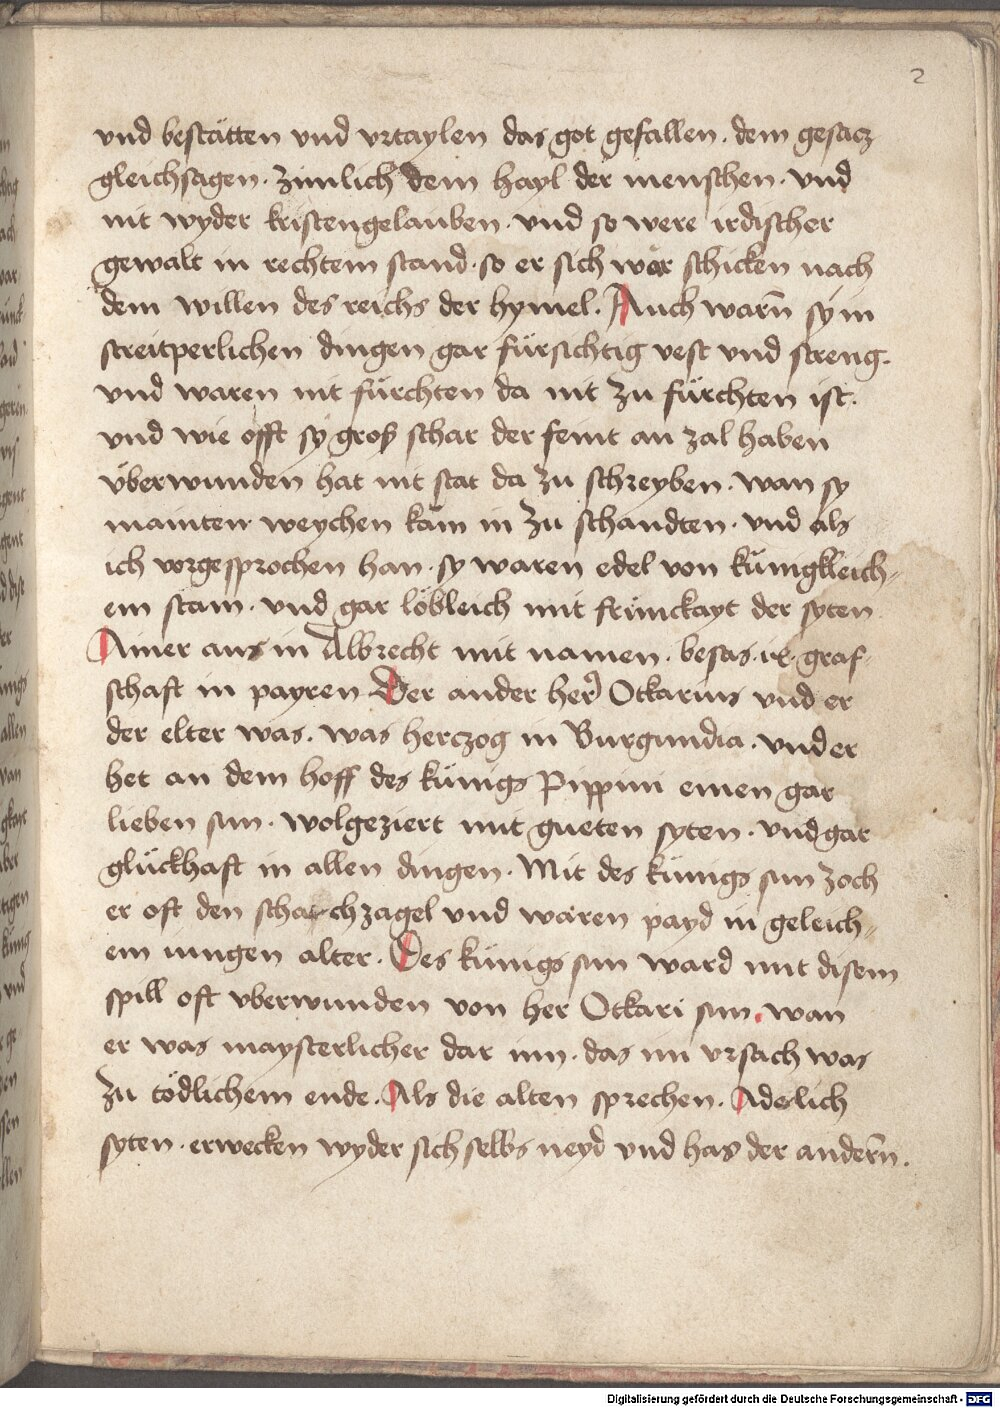 2
vnd bestätten vnd vrtaylen das got gefallen. dem gesacz
gleichsagen. zimlich dem hayl der menschen. vnd
nit wyder kristengelauben. vnd so were irdischer
gewalt in rechtem stand. so er sich wär schicken nach
dem willen des reichs der hymel. Auch warn̄ sy in
streitperlichen dingen gar fürsichtig vest vnd streng.
vnd waren nit fürchten da nit zu fürchten ist.
vnd wie offt sy groß schar der feint an zal haben
überwunden hat nit stat da zu schreyben. wan sy
mainten weychen käm in zu schandten. vnd als
ich vorgesprochen han. sy waren edel von künigkleich⸗
em stam. vnd gar löbleich mit frümckayt der syten
Ainer aus in Albrecht mit namen. besas. ix. graf⸗
schaft in payren Der ander her Ockarius vnd er
der elter was. was herczog in Burgundia. vnd er
het an dem hoff des künigs Pippini einen gar
lieben sun. wolgeziert mit gueten syten. vnd gar
glückhaft in allen dingen. Mit des künigs sun zoch
er oft den schachzagel vnd waren payd in geleich⸗
em iungen alter. Des künigs sun ward mit disem
spill oft vberwunden von her Ockari sun. wan
er was maysterlicher dar inn. das im vrsach was
zu tödlichem ende. Als die alten sprechen. Adelich
syten. erwecken wyder sich selbs neyd vnd has der andern̄.
Digitalisierung gefördert durch die Deutsche Forschungsgemeinschaft - DFG